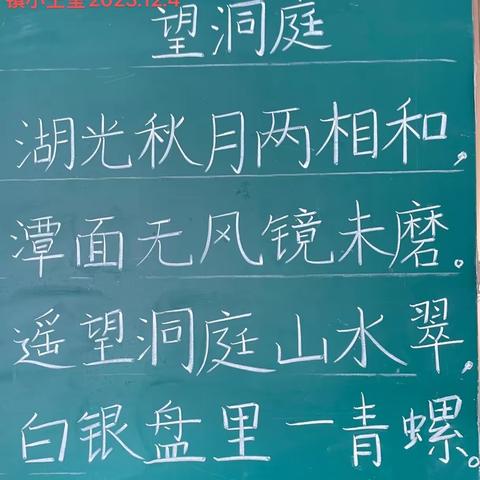 镇小王莹2023.12.4
望洞庭
湖光秋月两相和，
潭面无风镜未磨。
遥望洞庭山水翠，
白银盘里一青螺。